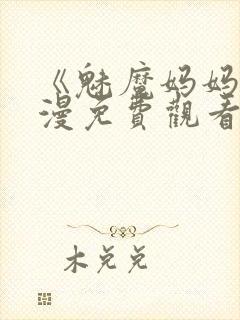 《魅魔妈妈
漫免費觀看
木兑兑